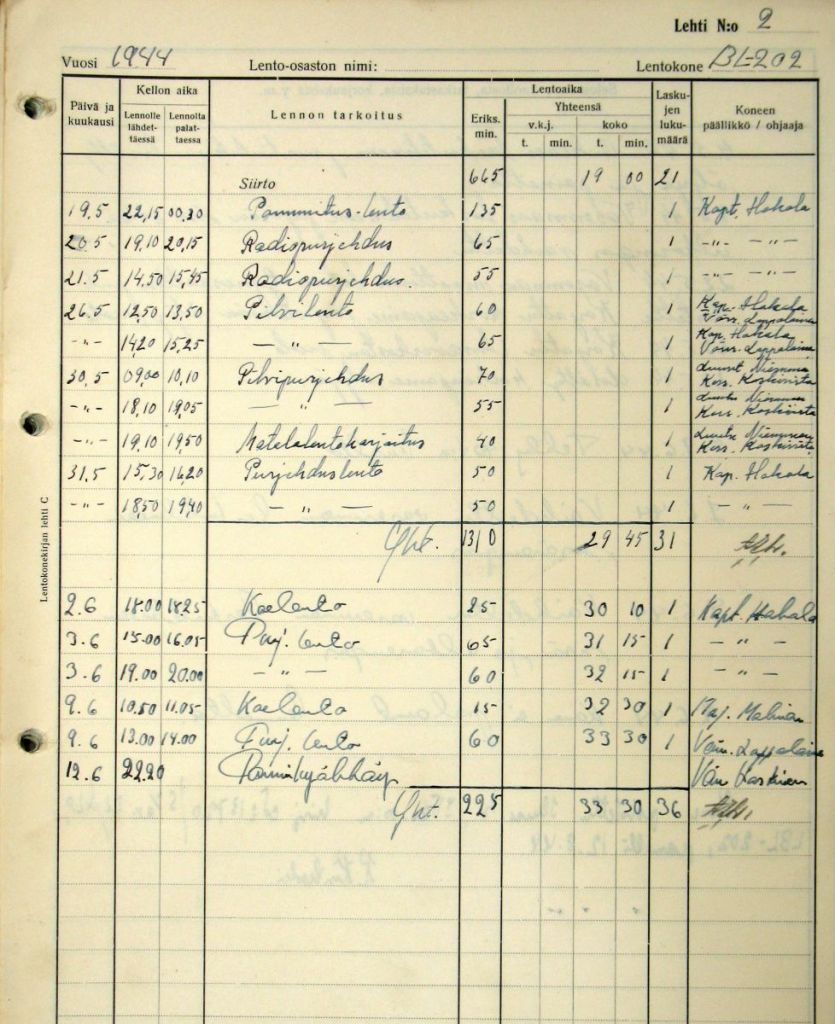 Lehti N:o 2
Vuosi 1944 Lento-osaston nimi: Lentokone BL-202
Päivä ja kuukausi Kellon aika Lennon tarkoitus Lentoaika Lasku-jen luku-määrä Koneen päällikkö / ohjaaja
Lennolle lähdet-täessä Lennolta palat-taessa Eriks. min. Yhteensä
v.k.j. koko
t. min. t. min.
Siirto 665 19 00 21
19.5 22,15 00,30 Pommitus-lento 135 1 Kapt. Hakala
20.5 19,10 20,15 Radiopurjehdus 65 1 -"- -"-
21.5 14,50 15,45 Radiopurjehdus. 55 1 -"- -"-
26.5 12,50 13,50 Pilvilento 60 1 Kap. Hakala
Vänr. Lappalainen
-"- 14,20 15,25 — " — 65 1 Kap. Hakala
Vänr. Lappalainen
30.5 09,00 10,10 Pilvipurjehdus 70 1 Luutn. Nieminen
Kers. Koskivirta
-"- 18,10 19,05 — " — 55 1 Luutn. Nieminen
Kers. Koskivirta
-"- 19,10 19,50 Matalalentoharjoitus 40 1 Luutn. Nieminen
Kers. Koskivirta
31.5 15,30 16,20 Purjehduslento 50 1 Kap. Hakala
-"- 18,50 19,40 — " — 50 1 — " —
Yht. 1310 29 45 31
2.6 18.00 18.25 Koelento 25 30 10 1 Kapt. Hakala
3.6 15.00 16.05 Purj. lento 65 31 15 1 — " —
3.6 19.00 20.00 — " — 60 32 15 1 — " —
9.6 10.50 11.05 Koelento 15 32 30 1 Maj.
9.6 13.00 14.00 Purj. lento 60 33 30 1 Vänr. Lappalainen
12.6 22.20 Vän
Yht. 225 33 30 36
Lentokonekirjan lehti C